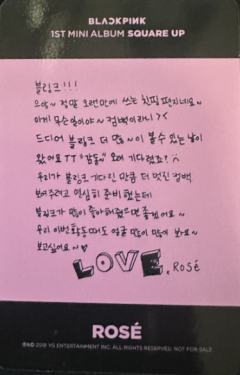 BLACKPINK
1ST MINI ALBUM SQUARE UP
블링크!!!
으아~ 정말 오랜만에 쓰는 친필 편지네요~
이게 무슨 일이야~ 컴백이라니 ><
드디어 블링크 더 많~이 볼 수 있는 날이
왔어요 TT "감동" 오래 기다렸죠?
우리가 블링크 기다린 만큼 더 멋진 컴백
보여주려고 열심히 준비했는데
블링크가 많이 좋아해줬으면 좋겠어요~
우리 이번 활동때도 얼굴 많이 많이 봐요~
보고싶어요~♥
LOVE, ROSÉ
ROSÉ
℗&© 2018 YG ENTERTAINMENT INC. ALL RIGHTS RESERVED. NOT FOR SALE.